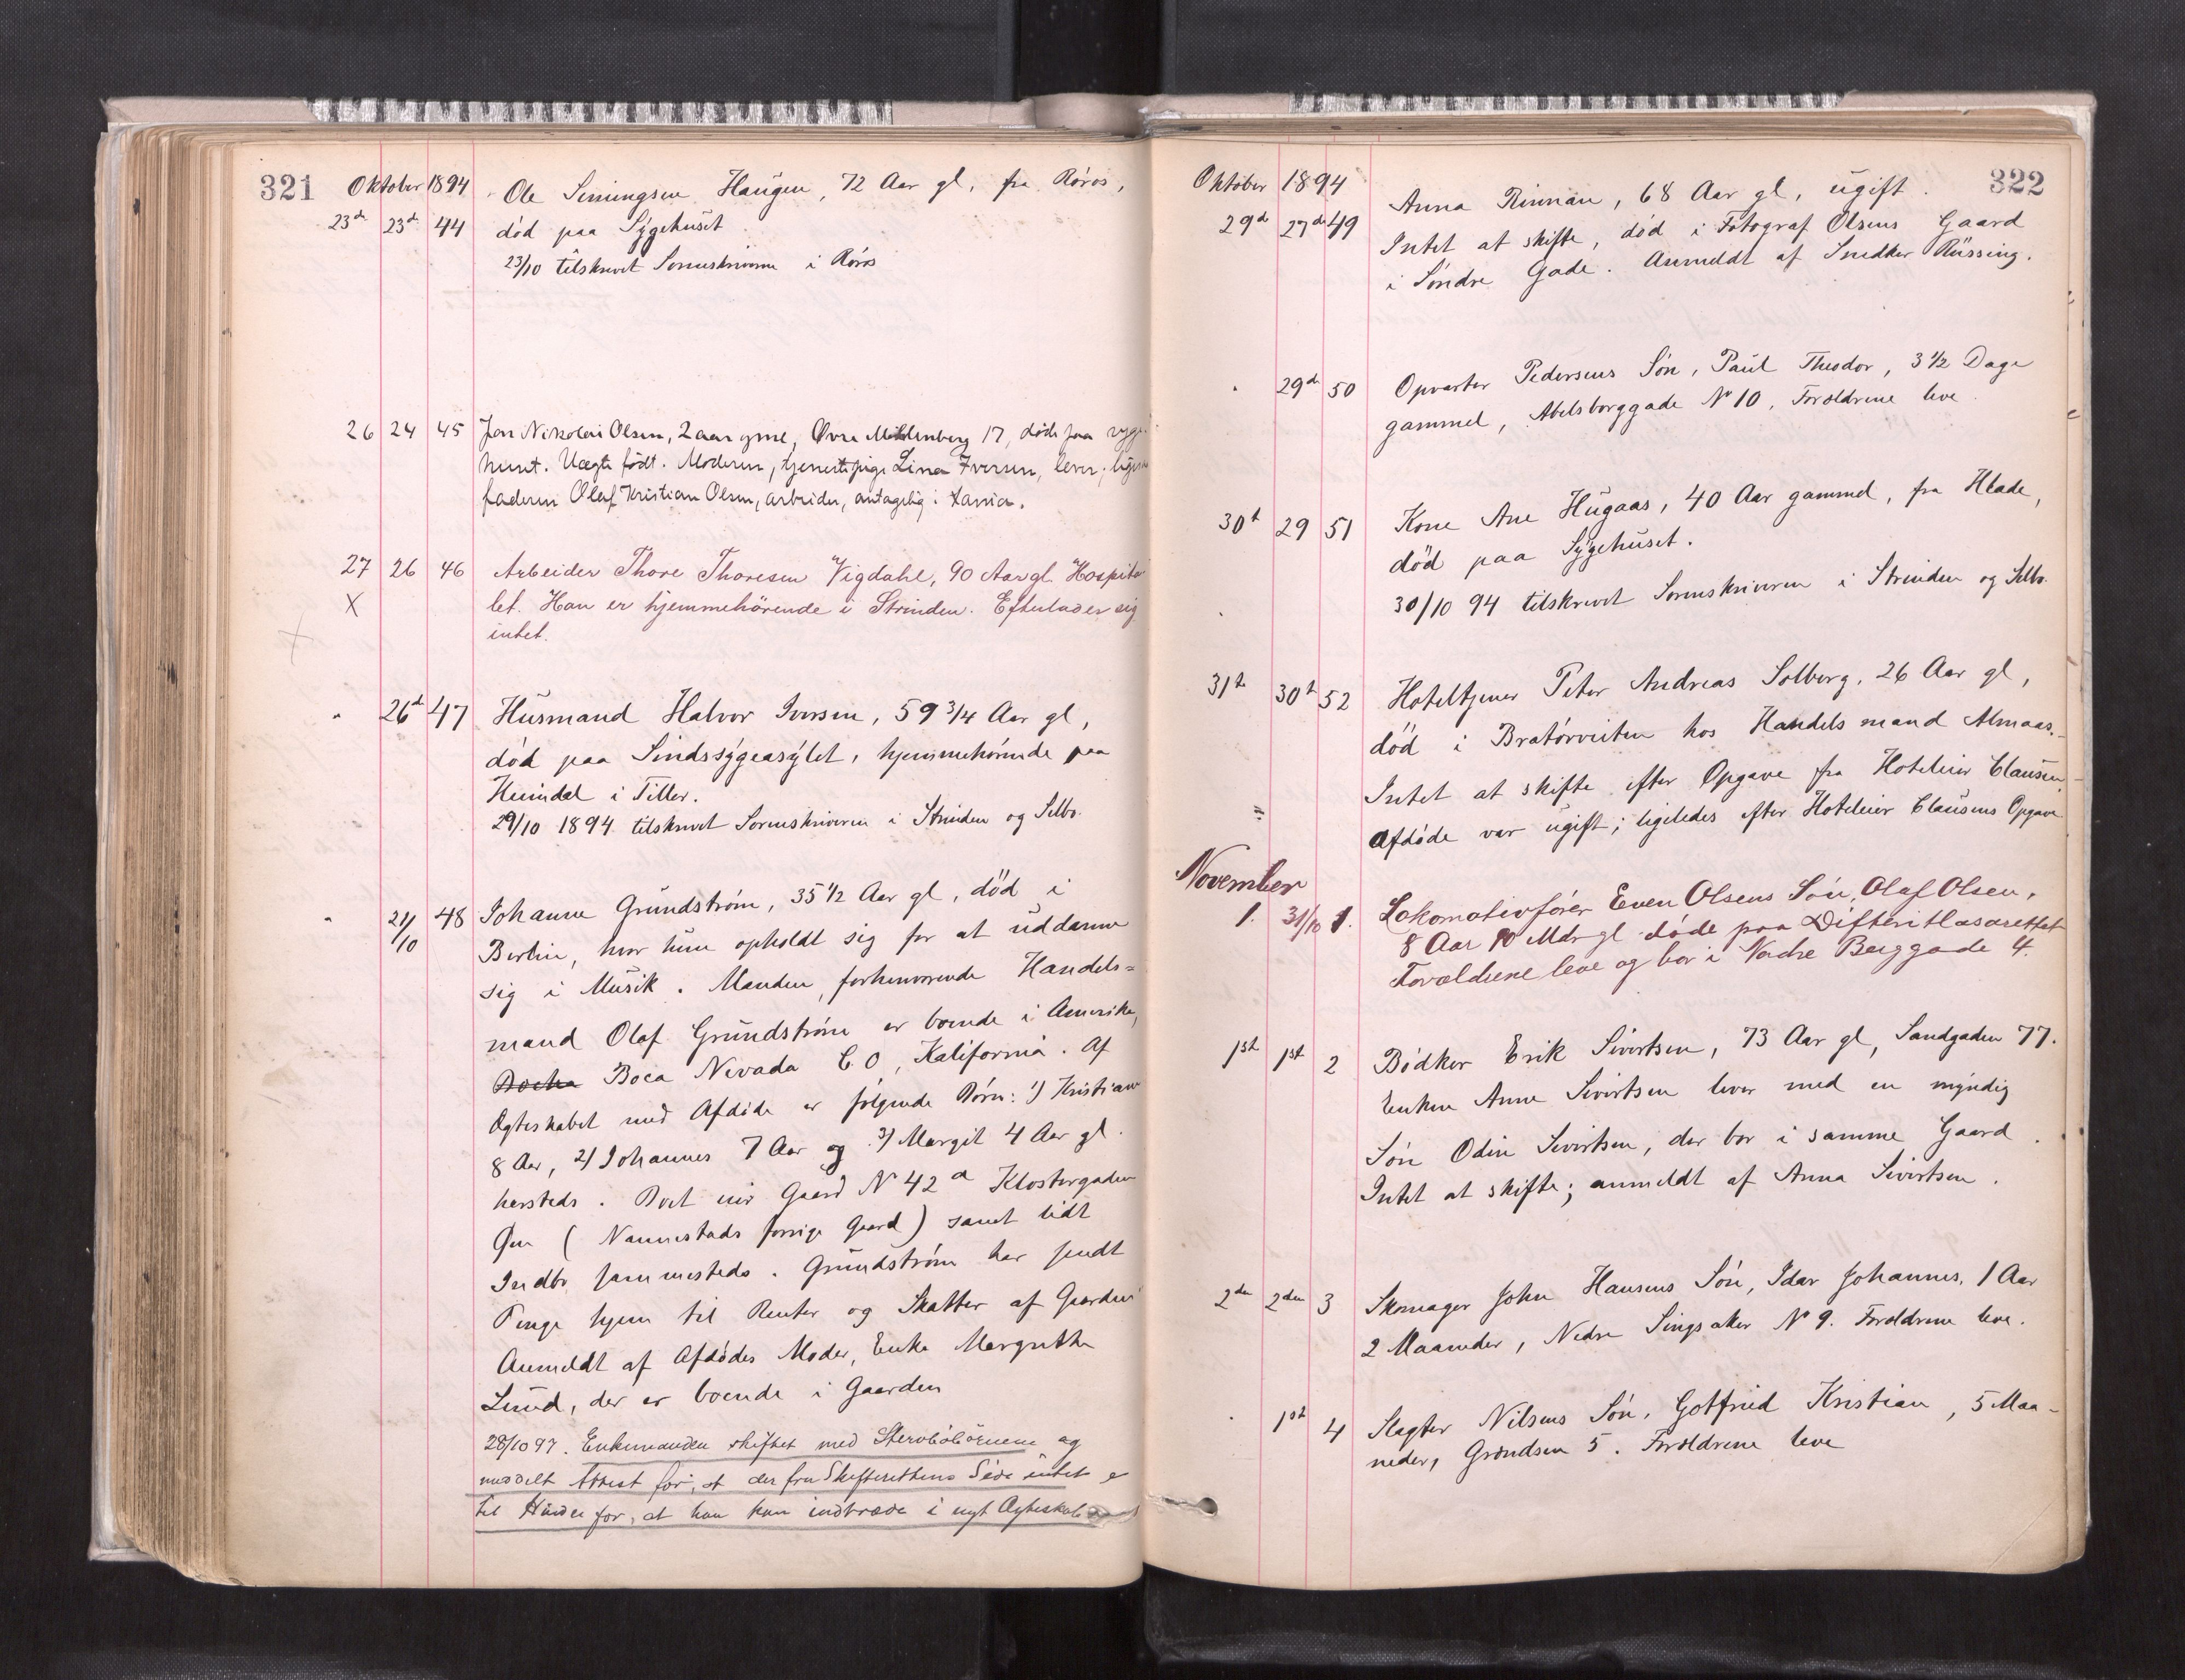 321 Oktober 1894
23de 23de 44 Ole Simingsen Haugen, 72 Aar gl, fra Røros,
død paa Sygehuset
23/10 tilskrevet Sorenskriveren i Røros
26 24 45 Jon Nikolai Olsen, 2 aar gml, Øvre Møllenberg 17, døde paa syge
huset. Uægte født. Moderen, tjenestepige Lina Iversen, lever; ligesaa
faderen Olaf Kristian Olsen, arbeider, antagelig i
27 26 46 Arbeider Thore Thoresen Vigdahl, 90 Aar gl. Hospita
X let. Han er hjemmehörende i Strinden. Efterlader sig
intet.
" 26de 47 Husmand Halvor Iversen, 59 3/4 Aar gl,
død paa Sindssygeasylet, hjemmehørende paa
Heimdal i Tiller.
29/10 1894 tilskrevet Sorenskriveren i Strinden og Selbo.
" 21/10 48 Johanne Grundstrøm, 35 1/2 Aar gl, død i
Berlin, hvor hun opholdt sig for at uddanne
sig i Musik. Manden, forhenværende Handels=
mand Olaf Grundstrøm er boende i Amerika,
Boca Nevada C.O, Kalifornia. Af
Ægteskabet med Afdøde er følgende Børn: 1) Kristian
8 Aar, 2) Johannes 7 Aar og 3) Margit 4 Aar gl.
hersteds. Boet eier Gaard No 42 a Klostergaden
Øen (Nannestads forrige Gaard) samt lidt
Indbo sammesteds. Grundstrøm har sendt
Penge hjem til Renter og Skatter af Gaarden
Anmeldt af Afdødes Moder, Enke Margrethe
Lund, der er boende i Gaarden
28/10 97. Enkemanden skiftet med Stervbobörnene og
meddelt Attest for, at der fra Skifterettens Side intet er
til Hinder for, at han kan indtræde i nyt Ægteskab
Oktober 1894 322
29de 27de 49 Anna Rinnan, 68 Aar gl, ugift.
Intet at skifte, død i Fotograf Olsens Gaard
i Søndre Gade. Anmeldt af Snedker Rüssing.
" 29de 50 Opvarter Pedersens Søn, Paul Theodor, 3 1/2 Dage
gammel, Abelsborggade No 10, Forældrene leve.
30te 29 51 Kone Ane Hugaas, 40 Aar gammel, fra Hlade,
død paa Sygehuset.
30/10 94 tilskrevet Sorenskriveren i Strinden og Selbo.
31te 30te 52 Hoteltjener Peter Andreas Solberg, 26 Aar gl,
død i Bratørveiten hos Handelsmand Almaas.
Intet at skifte efter Opgave fra Hoteleier Clausen
Afdøde var ugift; ligeledes efter Hoteleier Clausens Opgave
November
1. 31/10 1. Lokomotivfører Even Olsens Søn, Olaf Olsen,
8 Aar 10 Mdr gl døde paa Difteritlasarettet
Forældrene leve og bor i Nedre Berggade 4.
1st 1st 2 Bødker Erik Sivertsen, 73 Aar gl, Sandgaden 77.
Enken Anne Sivertsen lever med en myndig
Søn Odin Sivertsen, der bor i samme Gaard.
Intet at skifte; anmeldt af Anna Sivertsen.
2den 2den 3 Skomager John Hansens Søn, Idar Johannes, 1 Aar
2 Maaneder, Nedre Singsaker No 9. Forældrene leve.
" 1st 4 Slagter Nilsens Søn, Gotfried Kristian, 5 Maa-
neder, Grændsen 5. Forældrene leve